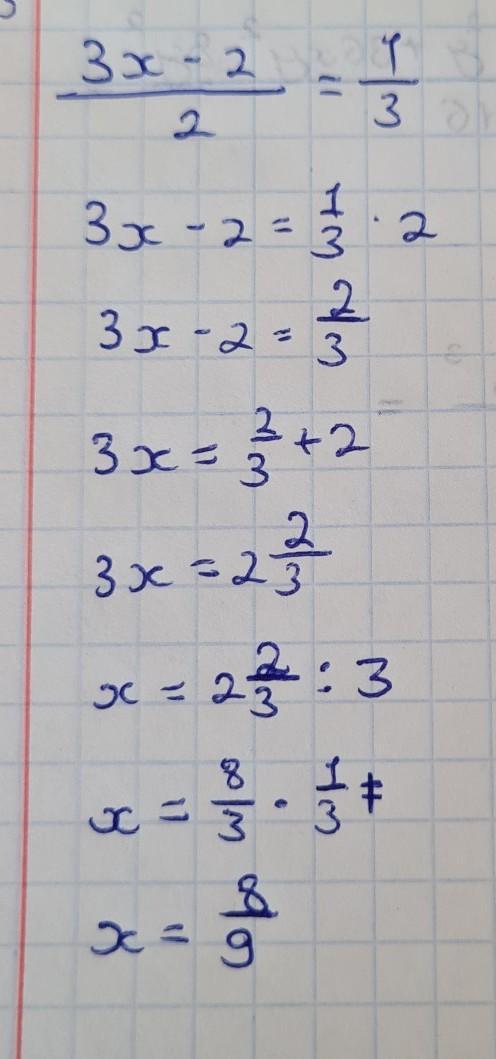 (3x - 2)/2 = 1/3
3x - 2 = 1/3 · 2
3x - 2 = 2/3
3x = 2/3 + 2
3x = 2 2/3
x = 2 2/3 : 3
x = 8/3 · 1/3
x = 8/9